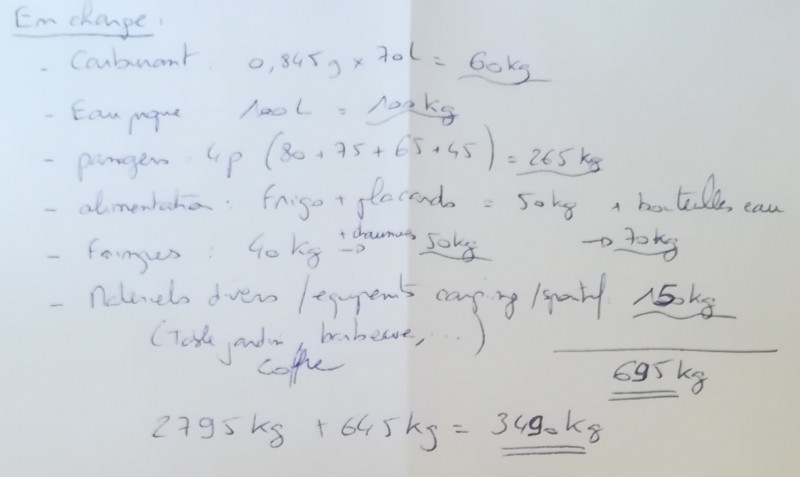 En charge :
- Carburant : 0,845g x 70L = 60kg
- Eau propre 100L = 100kg
- passagers : 4p (80 + 75 + 65 + 45) = 265 kg
- alimentation : Frigo + placards = 50kg + bouteilles eau
→ 70kg
- Fringues : 40 kg + chaussures → 50kg
- Matériels divers / equipements camping / sportif : 150kg
(Table jardin, barbecue, ...)
coffre
695 kg
2795 kg + 645 kg = 3490 kg